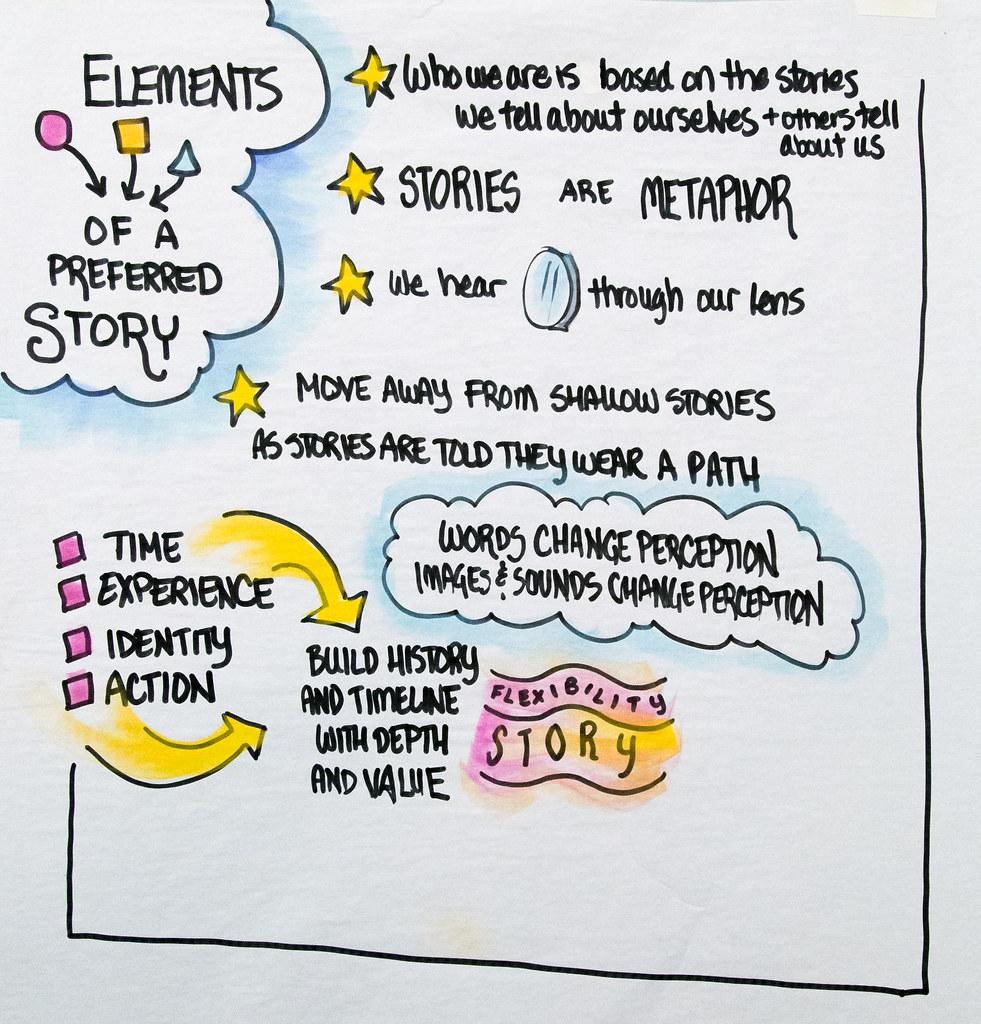 ELEMENTS
OF A
PREFERRED
STORY
Who we are is based on the stories
we tell about ourselves + others tell
about us
STORIES ARE METAPHOR
We hear through our lens
MOVE AWAY FROM SHALLOW STORIES
AS STORIES ARE TOLD THEY WEAR A PATH
WORDS CHANGE PERCEPTION
IMAGES & SOUNDS CHANGE PERCEPTION
TIME
EXPERIENCE
IDENTITY
ACTION
BUILD HISTORY
AND TIMELINE
WITH DEPTH
AND VALUE
FLEXIBILITY
STORY